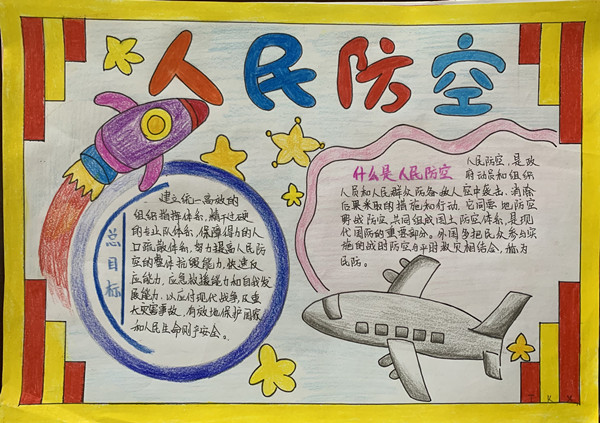 人民防空
总目标
建立统一高效的
组织指挥体系,精干过硬
的专业队体系,保障得力的人
口疏散体系,努力提高人民防
空的整体抗毁能力,快速反
应能力,应急救援能力和自我发
展能力,以应付现代战争及重
大灾害事故,有效地保护国家
和人民生命财产安全。
什么是人民防空
人民防空,是政
府动员和组织
人员和人民群众防备敌人空中袭击、消除
后果采取的措施和行动。它同要地防空
野战防空共同组成国土防空体系,是现
代国防的重要部分。外国多把民众参与实
施的战时防空与平时救灾相结合,称为
民防。